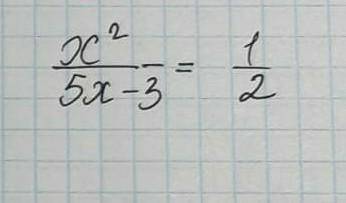 x² / (5x - 3) = 1/2